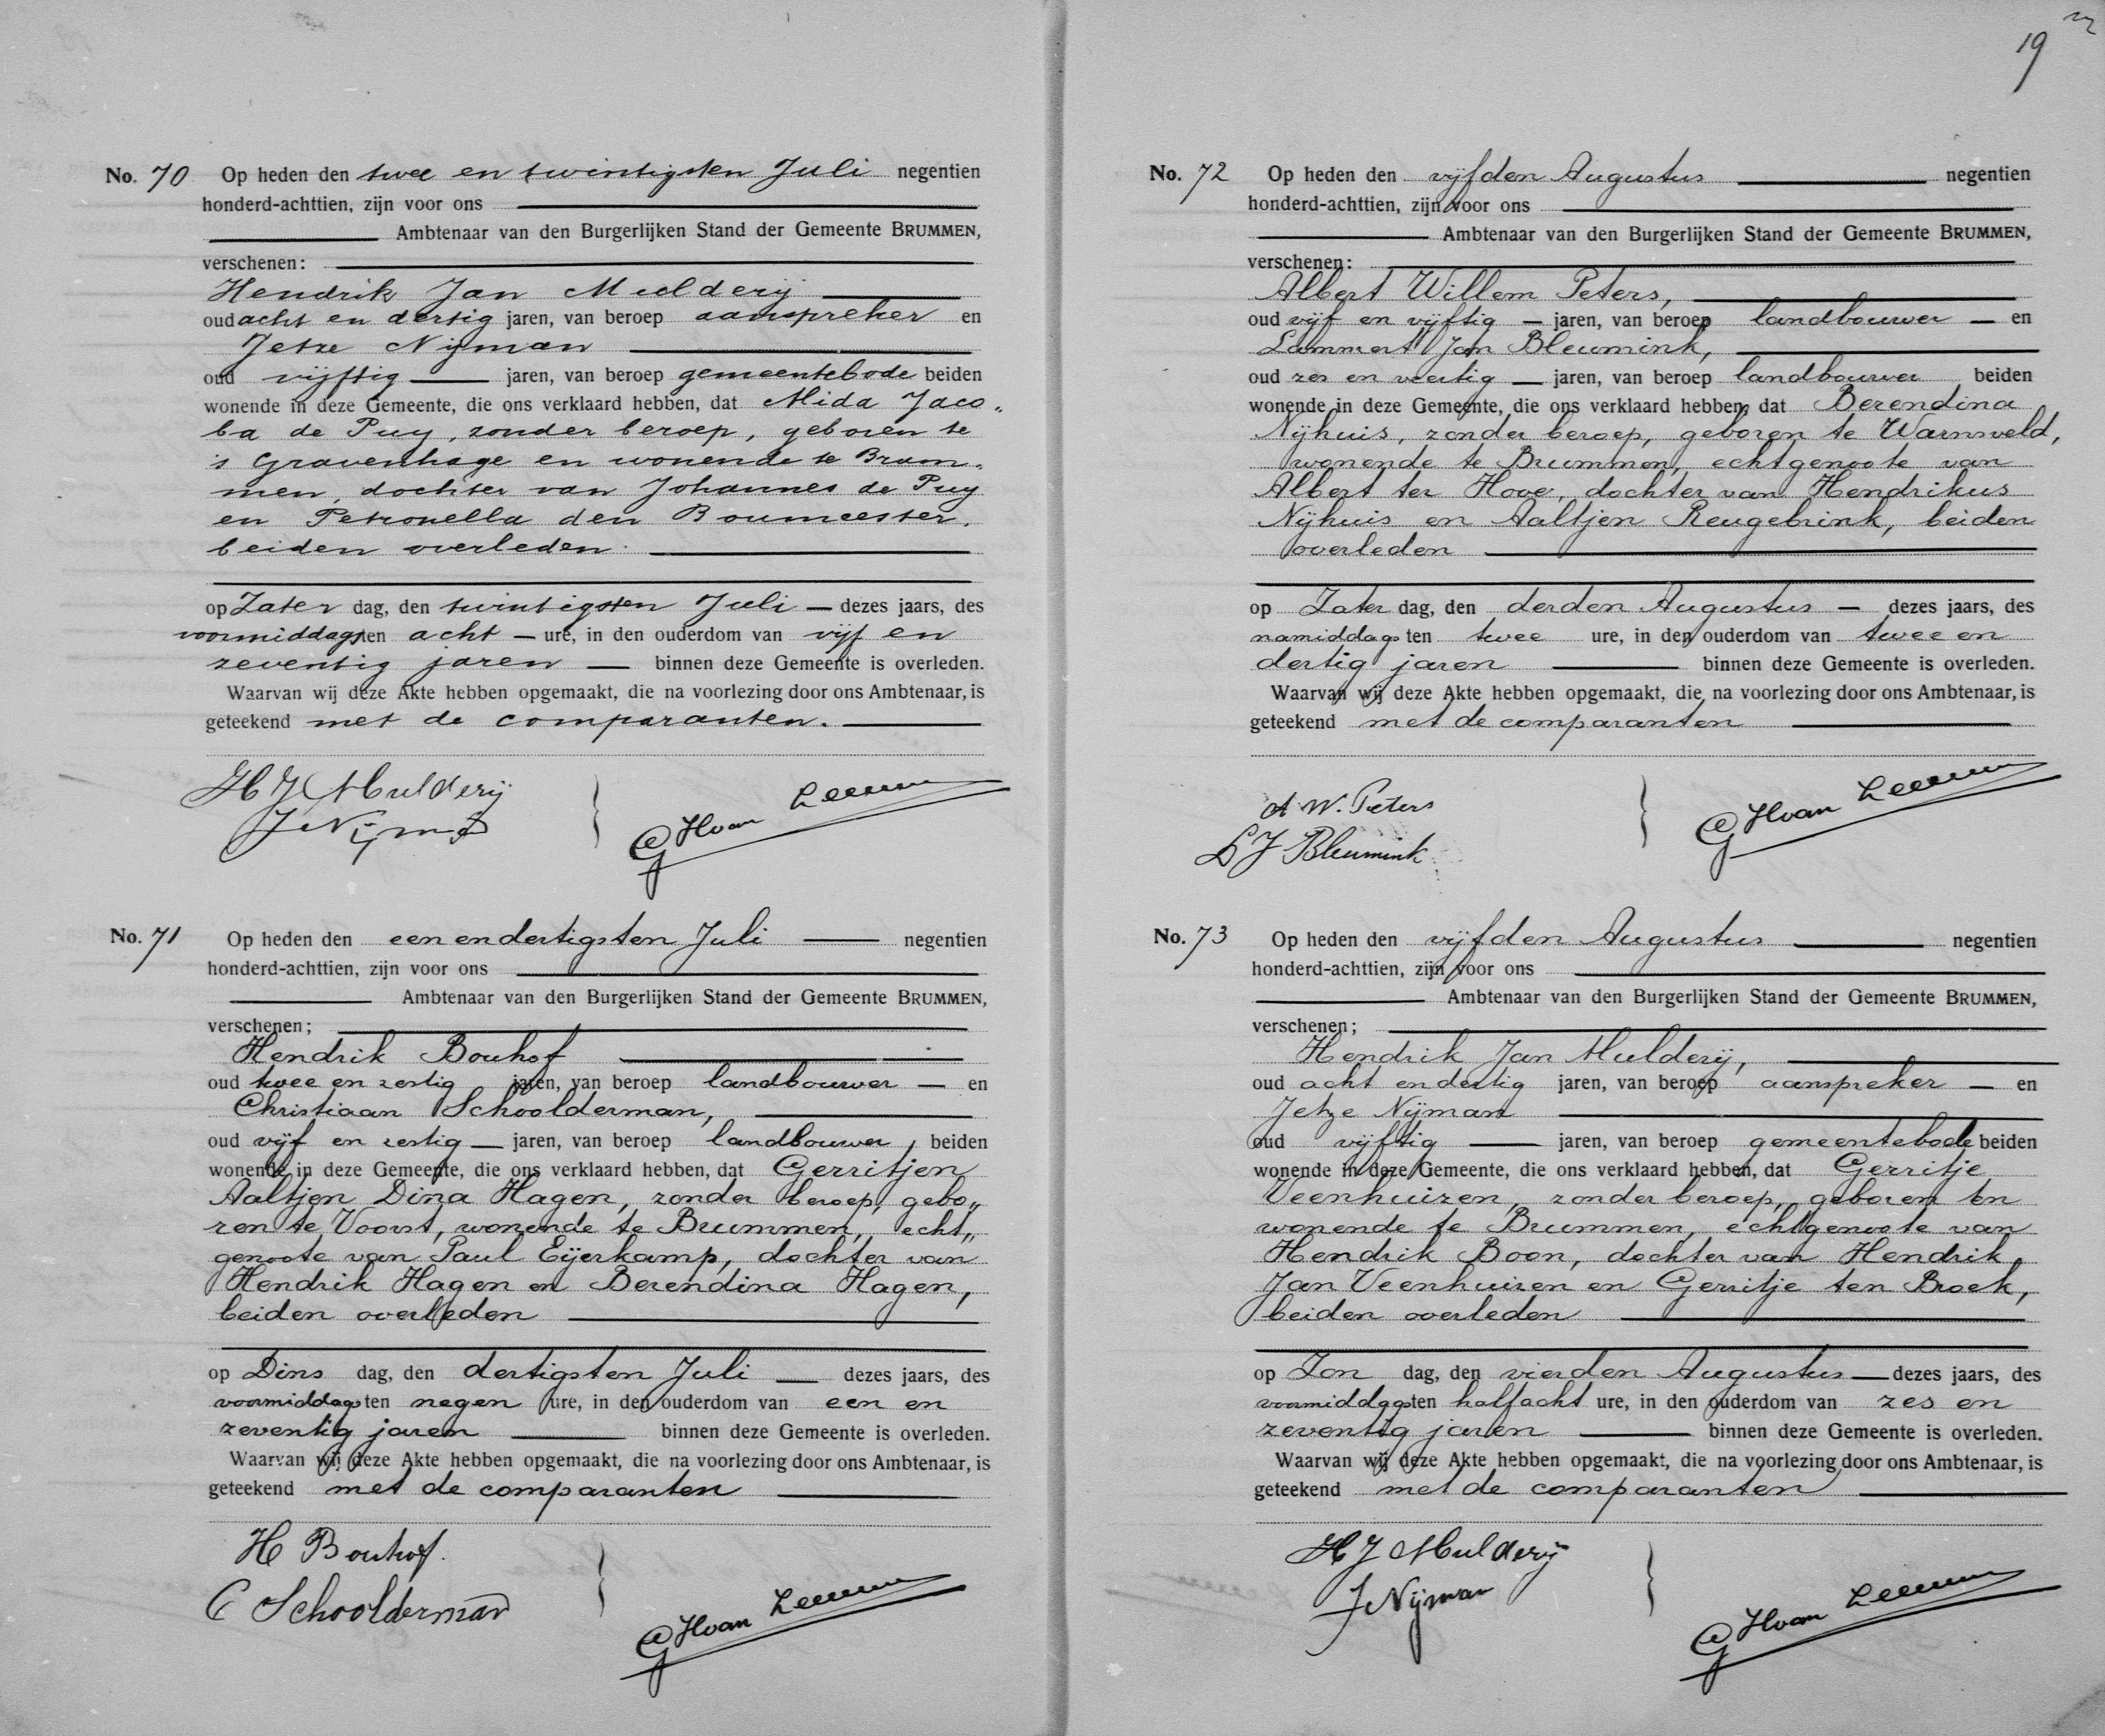 No. 70 Op heden den twee en twintigsten Juli negentien
honderd-achttien, zijn voor ons
Ambtenaar van den Burgerlijken Stand der Gemeente BRUMMEN,
verschenen:
Hendrik Jan Mulderij
oud acht en dertig jaren, van beroep aanspreker en
Jetze Nijman
oud vijftig jaren, van beroep gemeentebode beiden
wonende in deze Gemeente, die ons verklaard hebben, dat Mida Jaco„
ba de Puy, zonder beroep, geboren te
's Gravenhage en wonende te Brum„
men, dochter van Johannes de Puy
en Petronella den Boumeester,
beiden overleden.
op Zater dag, den twintigsten Juli dezes jaars, des
voormiddags ten acht ure, in den ouderdom van vijf en
zeventig jaren binnen deze Gemeente is overleden.
Waarvan wij deze Akte hebben opgemaakt, die na voorlezing door ons Ambtenaar, is
geteekend met de comparanten.
HJ Mulderij
J Nijman
GHvan Leeuwen
No. 71 Op heden den een en dertigsten Juli negentien
honderd-achttien, zijn voor ons
Ambtenaar van den Burgerlijken Stand der Gemeente BRUMMEN,
verschenen;
Hendrik Bouhof
oud twee en zestig jaren, van beroep landbouwer en
Christiaan Schoolderman,
oud vijf en zestig jaren, van beroep landbouwer, beiden
wonende in deze Gemeente, die ons verklaard hebben, dat Gerritjen
Aaltjen Dina Hagen, zonder beroep, gebo„
ren te Voorst, wonende te Brummen, echt„
genoote van Paul Eijerkamp, dochter van
Hendrik Hagen en Berendina Hagen,
beiden overleden
op Dins dag, den dertigsten Juli dezes jaars, des
voormiddags ten negen ure, in den ouderdom van een en
zeventig jaren binnen deze Gemeente is overleden.
Waarvan wij deze Akte hebben opgemaakt, die na voorlezing door ons Ambtenaar, is
geteekend met de comparanten
H Bouhof.
C Schoolderman
GHvan Leeuwen
19
No. 72 Op heden den vijfden Augustus negentien
honderd-achttien, zijn voor ons
Ambtenaar van den Burgerlijken Stand der Gemeente BRUMMEN,
verschenen:
Albert Willem Peters,
oud vijf en vijftig jaren, van beroep landbouwer en
Lammert Jan Bleumink,
oud zes en veertig jaren, van beroep landbouwer, beiden
wonende in deze Gemeente, die ons verklaard hebben, dat Berendina
Nijhuis, zonder beroep, geboren te Warnsveld,
wonende te Brummen, echtgenoote van
Albert ter Hove, dochter van Hendrikus
Nijhuis en Aaltjen Reugebrink, beiden
overleden
op Zater dag, den derden Augustus dezes jaars, des
namiddags ten twee ure, in den ouderdom van twee en
dertig jaren binnen deze Gemeente is overleden.
Waarvan wij deze Akte hebben opgemaakt, die na voorlezing door ons Ambtenaar, is
geteekend met de comparanten
A W. Peters
LJ Bleumink
GHvan Leeuwen
No. 73 Op heden den vijfden Augustus negentien
honderd-achttien, zijn voor ons
Ambtenaar van den Burgerlijken Stand der Gemeente BRUMMEN,
verschenen;
Hendrik Jan Mulderij,
oud acht en dertig jaren, van beroep aanspreker en
Jetze Nijman
oud vijftig jaren, van beroep gemeentebode beiden
wonende in deze Gemeente, die ons verklaard hebben, dat Gerritje
Veenhuizen, zonder beroep, geboren en
wonende te Brummen, echtgenoote van
Hendrik Boon, dochter van Hendrik
Jan Veenhuizen en Gerritje ten Broek,
beiden overleden
op Zon dag, den vierden Augustus dezes jaars, des
voormiddags ten halfacht ure, in den ouderdom van zes en
zeventig jaren binnen deze Gemeente is overleden.
Waarvan wij deze Akte hebben opgemaakt, die na voorlezing door ons Ambtenaar, is
geteekend met de comparanten
HJ Mulderij
J Nijman
GHvan Leeuwen